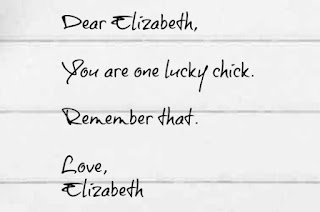 Dear Elizabeth,
You are one lucky chick.
Remember that.
Love,
Elizabeth